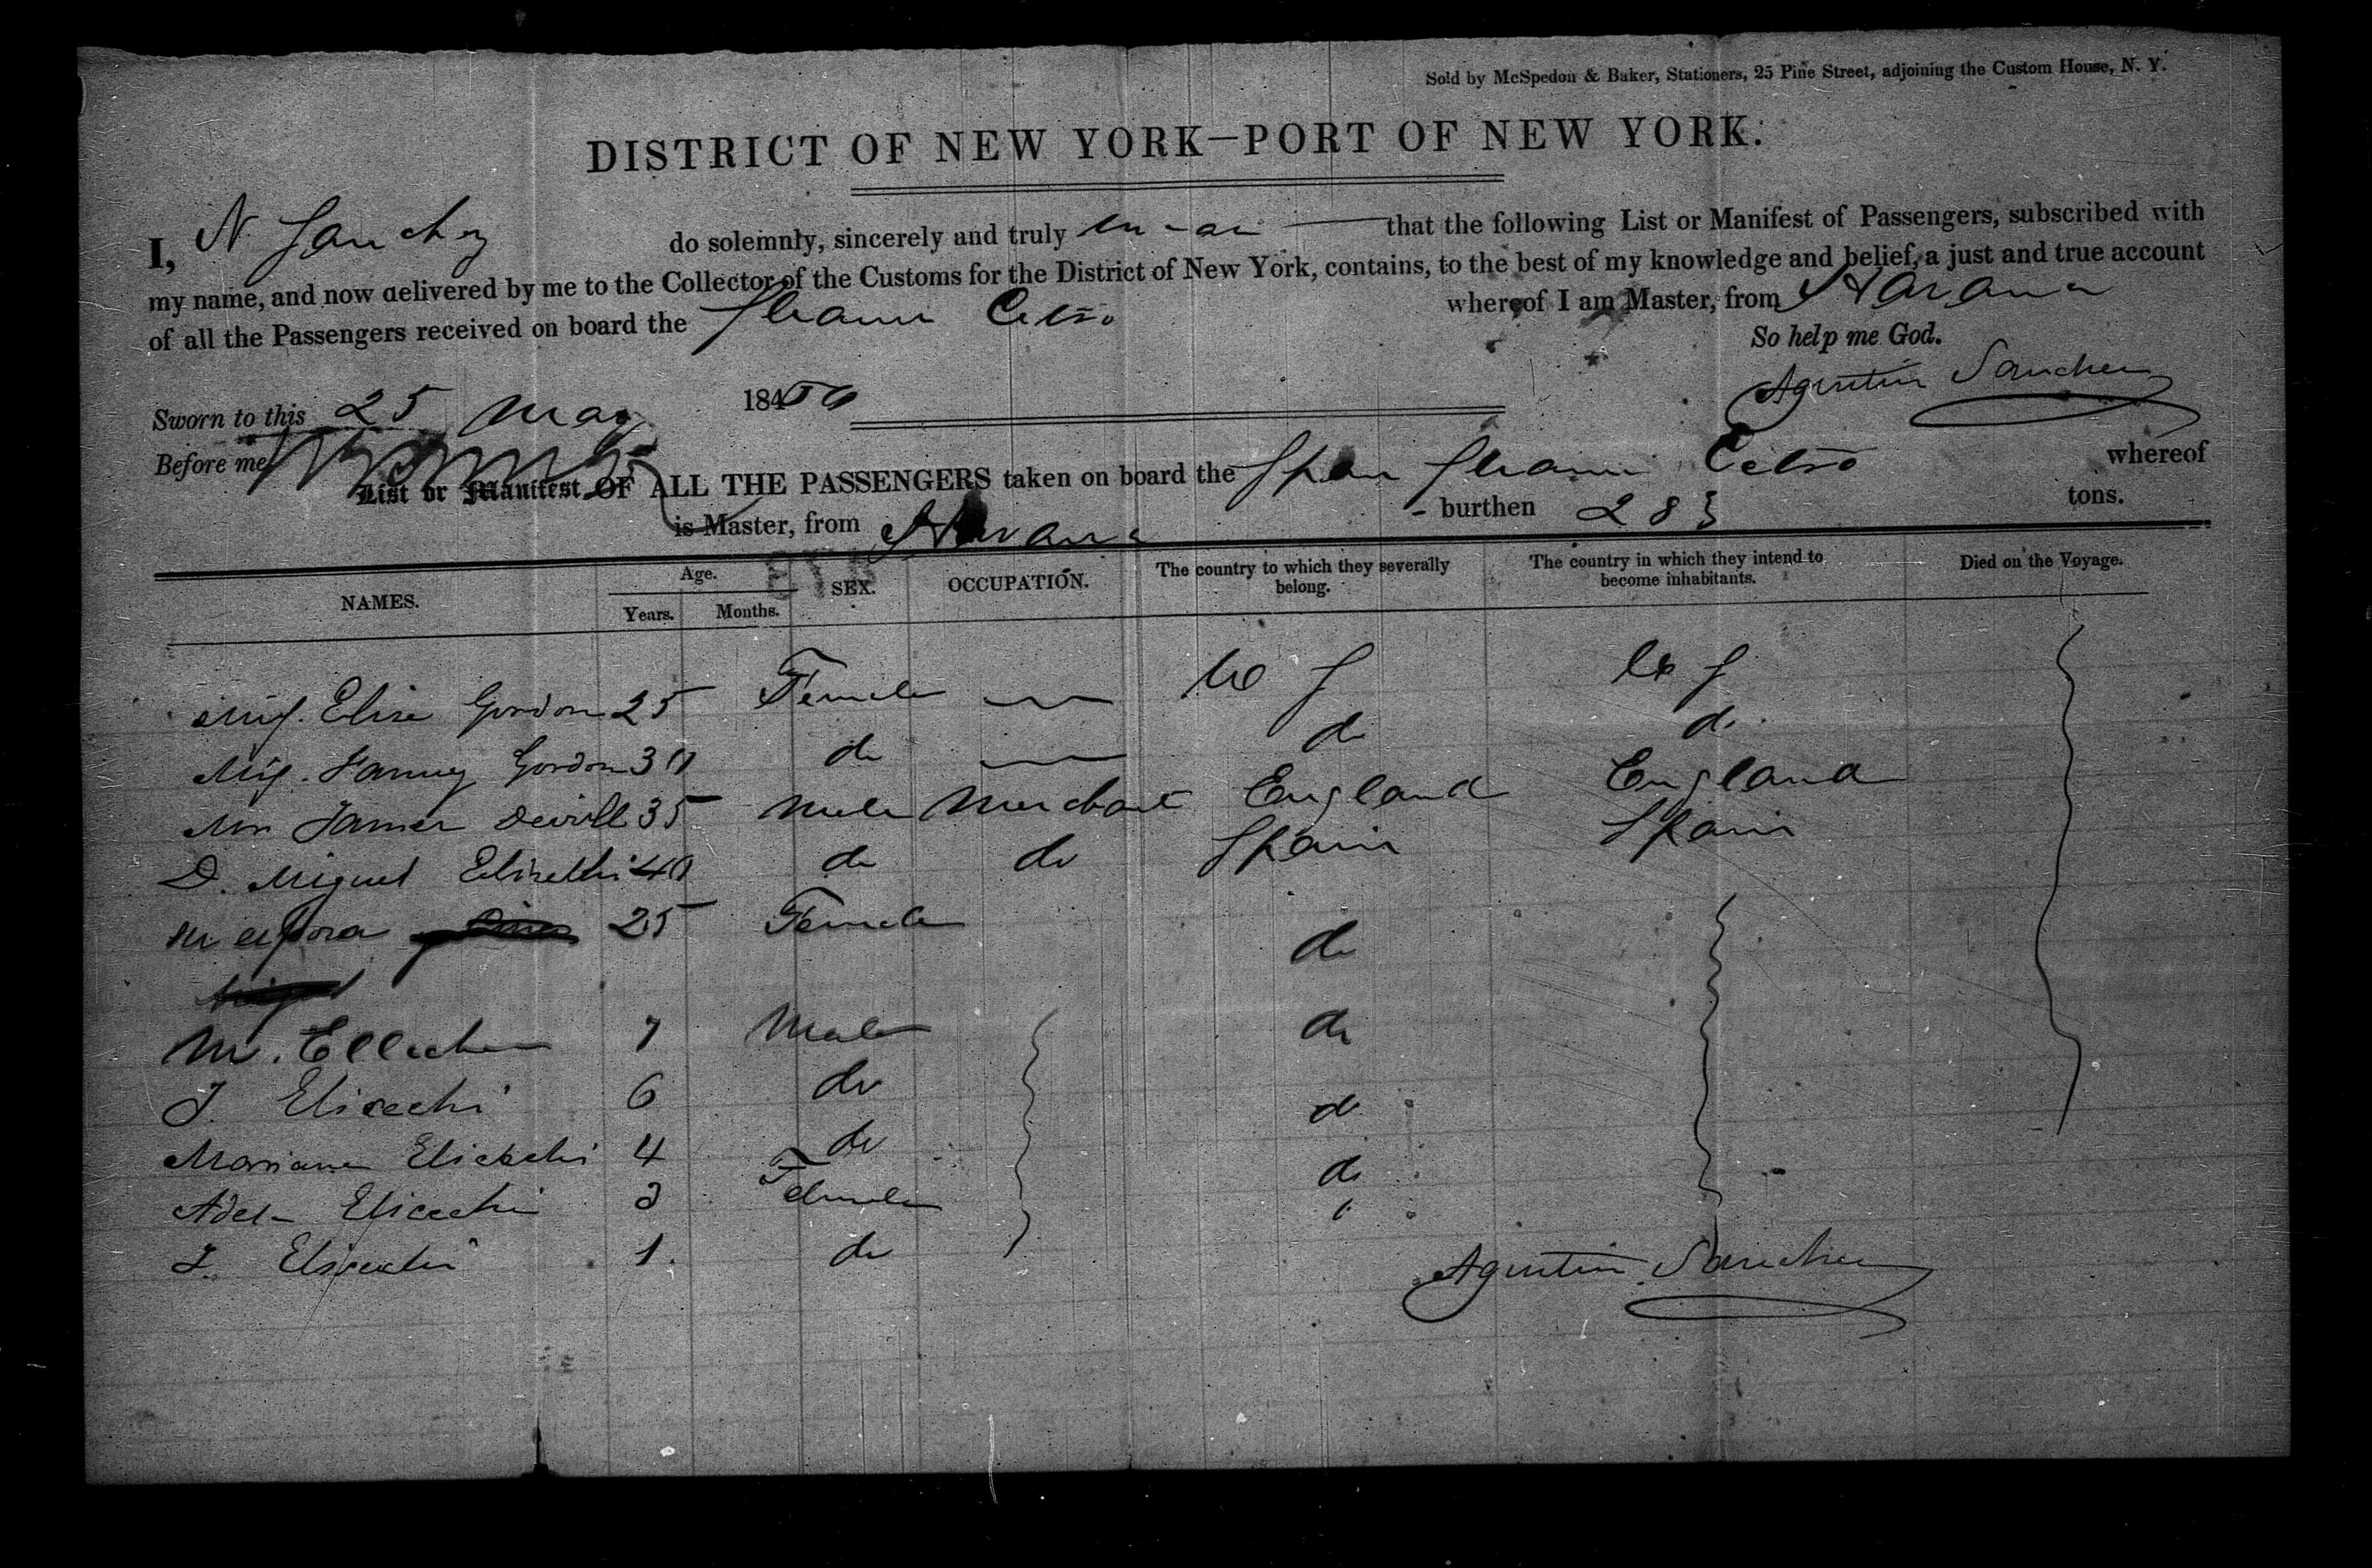 Sold by McSpedon & Baker, Stationers, 25 Pine Street, adjoining the Custom House, N. Y.
DISTRICT OF NEW YORK—PORT OF NEW YORK.
I, N Sanchez do solemnly, sincerely and truly swear that the following List or Manifest of Passengers, subscribed with
my name, and now delivered by me to the Collector of the Customs for the District of New York, contains, to the best of my knowledge and belief, a just and true account
of all the Passengers received on board the Steamer Celso whereof I am Master, from Havana
So help me God.
Agustin Sanchez
Sworn to this 25 May 18450
Before me
List or Manifest OF ALL THE PASSENGERS taken on board the Span Steamer Celso whereof
is Master, from Havana - burthen 283 tons.
NAMES. Age. SEX. OCCUPATION. The country to which they severally belong. The country in which they intend to become inhabitants. Died on the Voyage.
Years. Months.
Miss. Elise Gordon 25 Female U S U S
Miss. Fanny Gordon 30 do do do
Mr James Devill 35 Male Merchant England England
D. Miguel 40 do do Spain Spain
25 Female do
M. 7 Male do
J. Elicechi 6 do do
Mariana Elicechi 4 do do
Adela Elicechi 2 Female
J. Elicechi 1 do
Agustin Sanchez